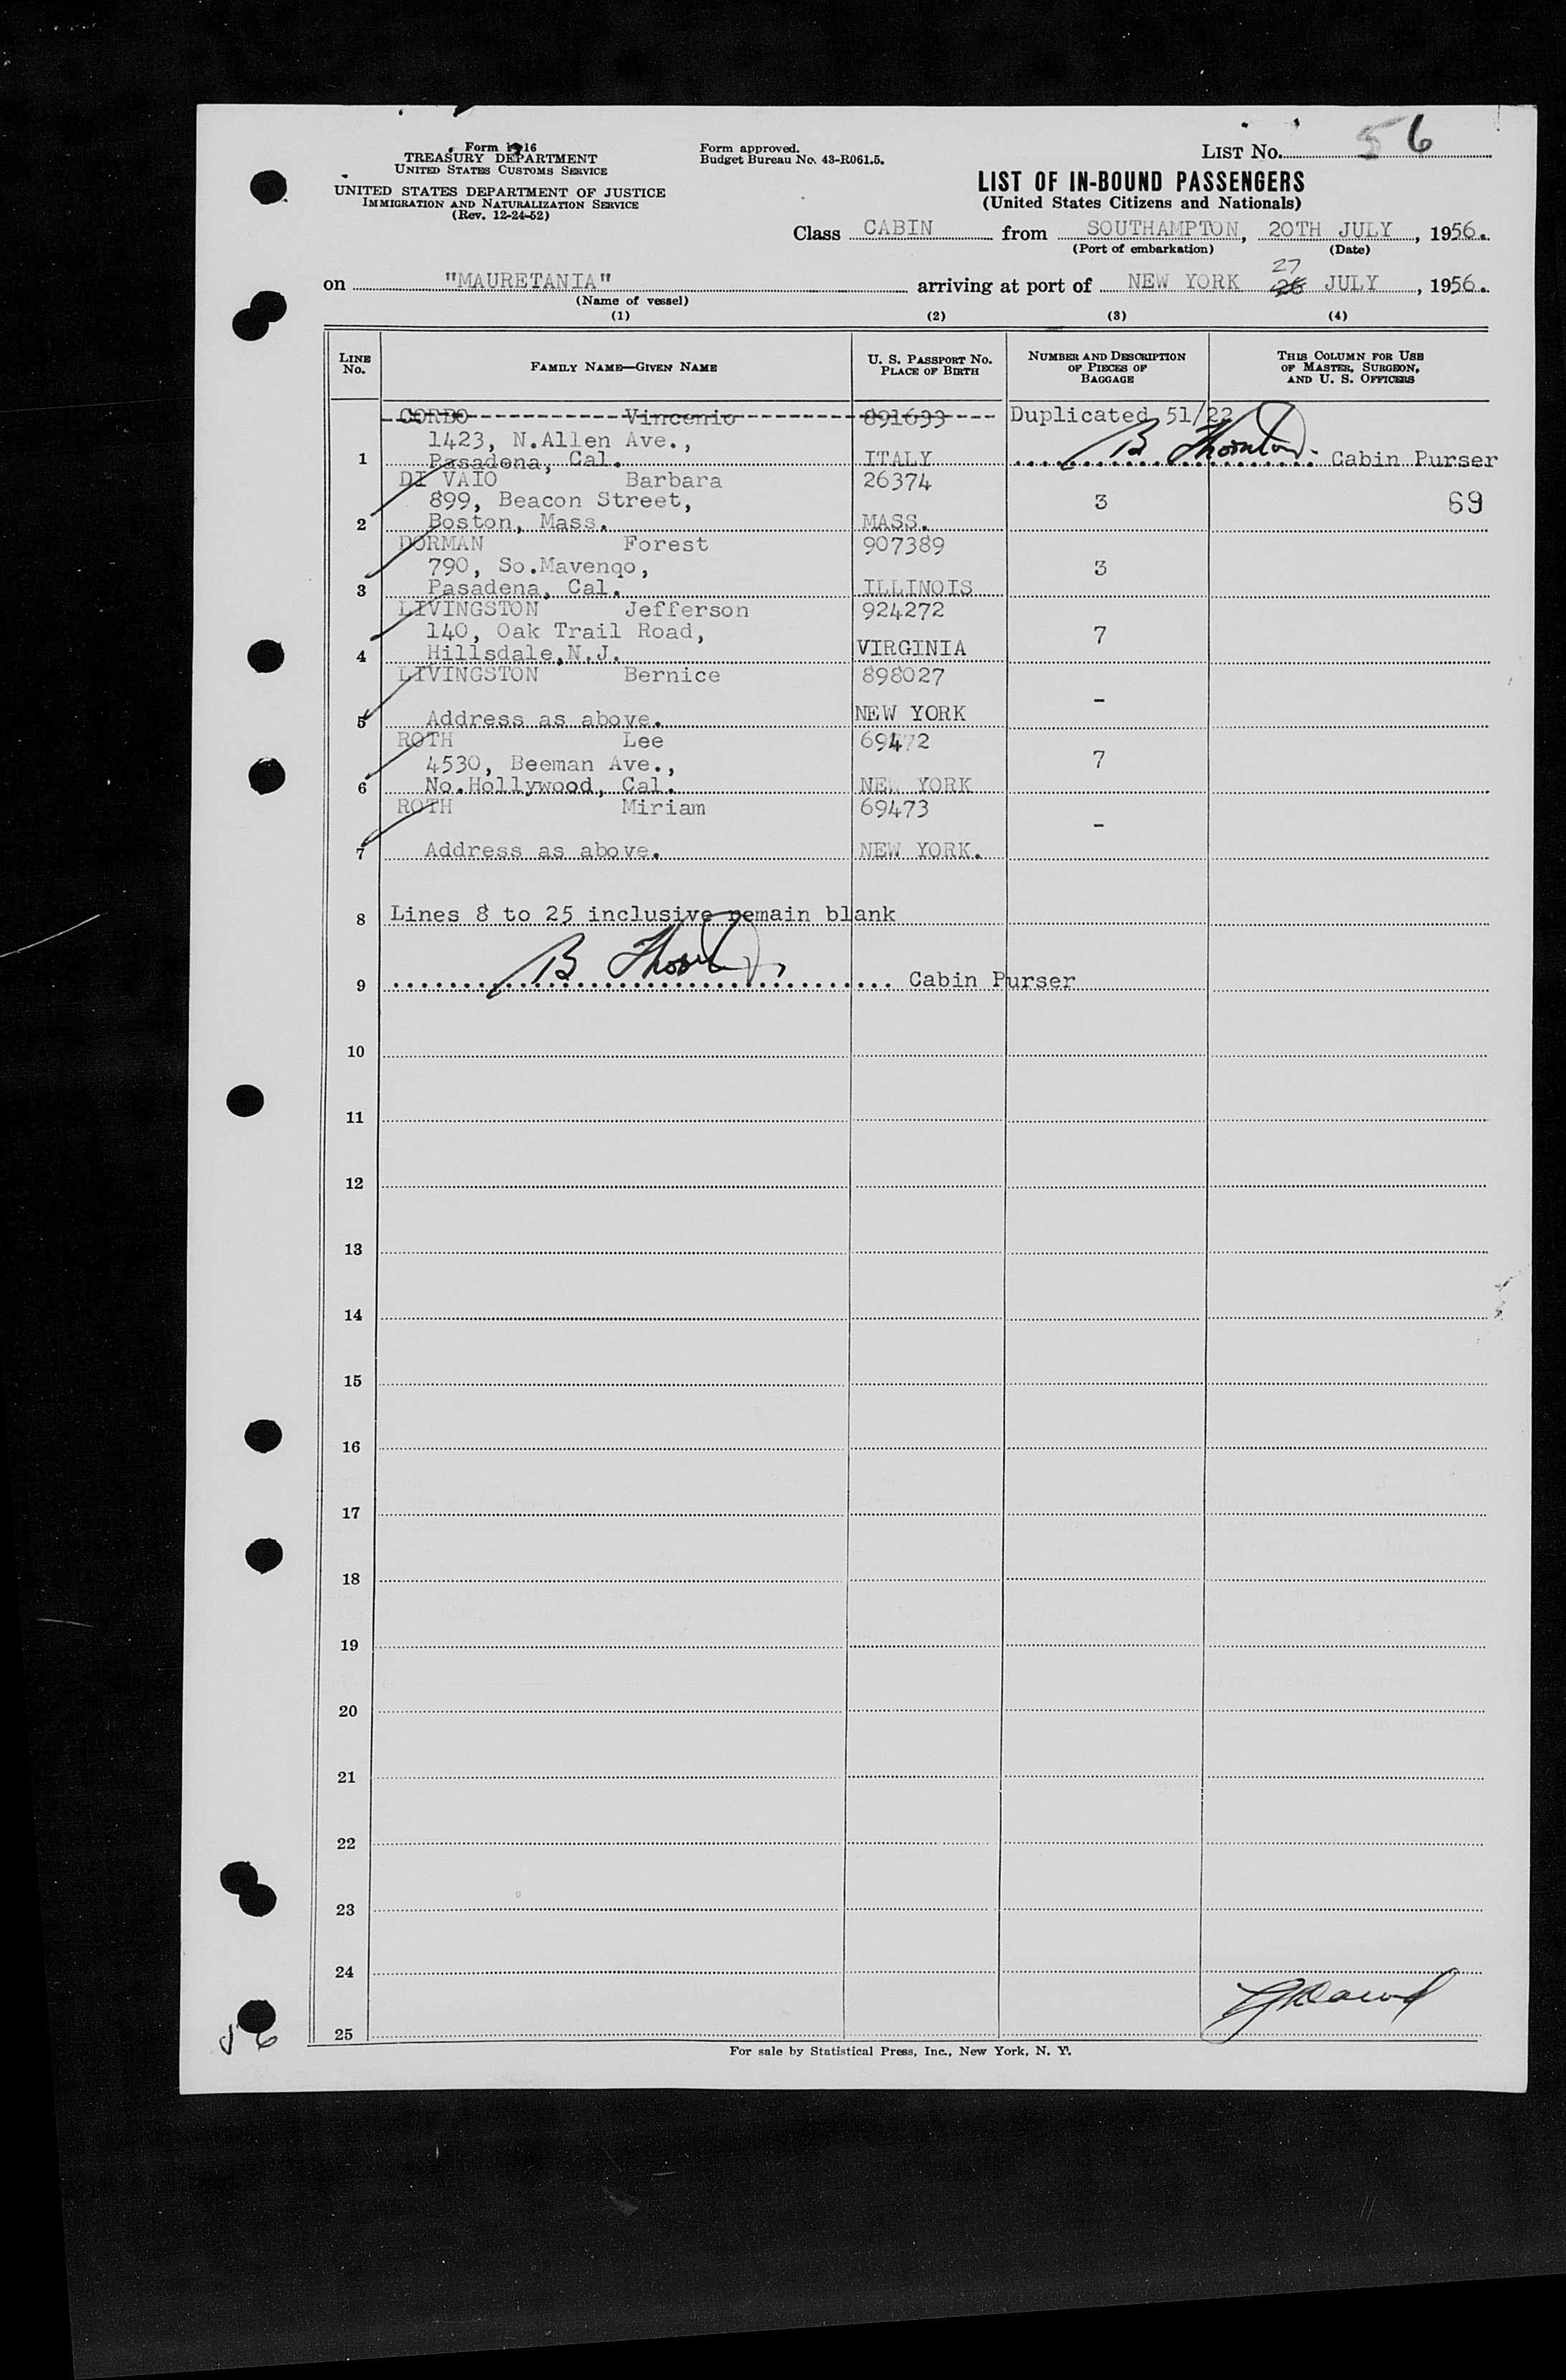 56
Form 1316
TREASURY DEPARTMENT
UNITED STATES CUSTOMS SERVICE
UNITED STATES DEPARTMENT OF JUSTICE
IMMIGRATION AND NATURALIZATION SERVICE
(Rev. 12-24-52)
Form approved.
Budget Bureau No. 43-R061.5.
LIST No.
LIST OF IN-BOUND PASSENGERS
(United States Citizens and Nationals)
Class CABIN from SOUTHAMPTON, 20TH JULY, 1956.
(Port of embarkation) (Date)
27
on "MAURETANIA" arriving at port of NEW YORK 26 JULY, 1956.
(Name of vessel)
(1) (2) (3) (4)
LINE No. FAMILY NAME—GIVEN NAME U. S. PASSPORT No. PLACE OF BIRTH NUMBER AND DESCRIPTION OF PIECES OF BAGGAGE THIS COLUMN FOR USE OF MASTER, SURGEON, AND U. S. OFFICERS
CORBO Vincenio 891633 Duplicated 51/22
1423, N.Allen Ave., B Thornton
1 Pasadena, Cal. ITALY Cabin Purser
DI VAIO Barbara 26374
899, Beacon Street, 3 69
2 Boston, Mass. MASS.
DORMAN Forest 907389
790, So.Mavenqo, 3
3 Pasadena, Cal. ILLINOIS
LIVINGSTON Jefferson 924272
140, Oak Trail Road, 7
4 Hillsdale,N.J. VIRGINIA
LIVINGSTON Bernice 898027
-
5 Address as above. NEW YORK
ROTH Lee 69472
4530, Beeman Ave., 7
6 No.Hollywood, Cal. NEW YORK
ROTH Miriam 69473
-
7 Address as above. NEW YORK.
8 Lines 8 to 25 inclusive remain blank
B Thornton
9 Cabin Purser
10
11
12
13
14
15
16
17
18
19
20
21
22
23
24
25
56
For sale by Statistical Press, Inc., New York, N. Y.